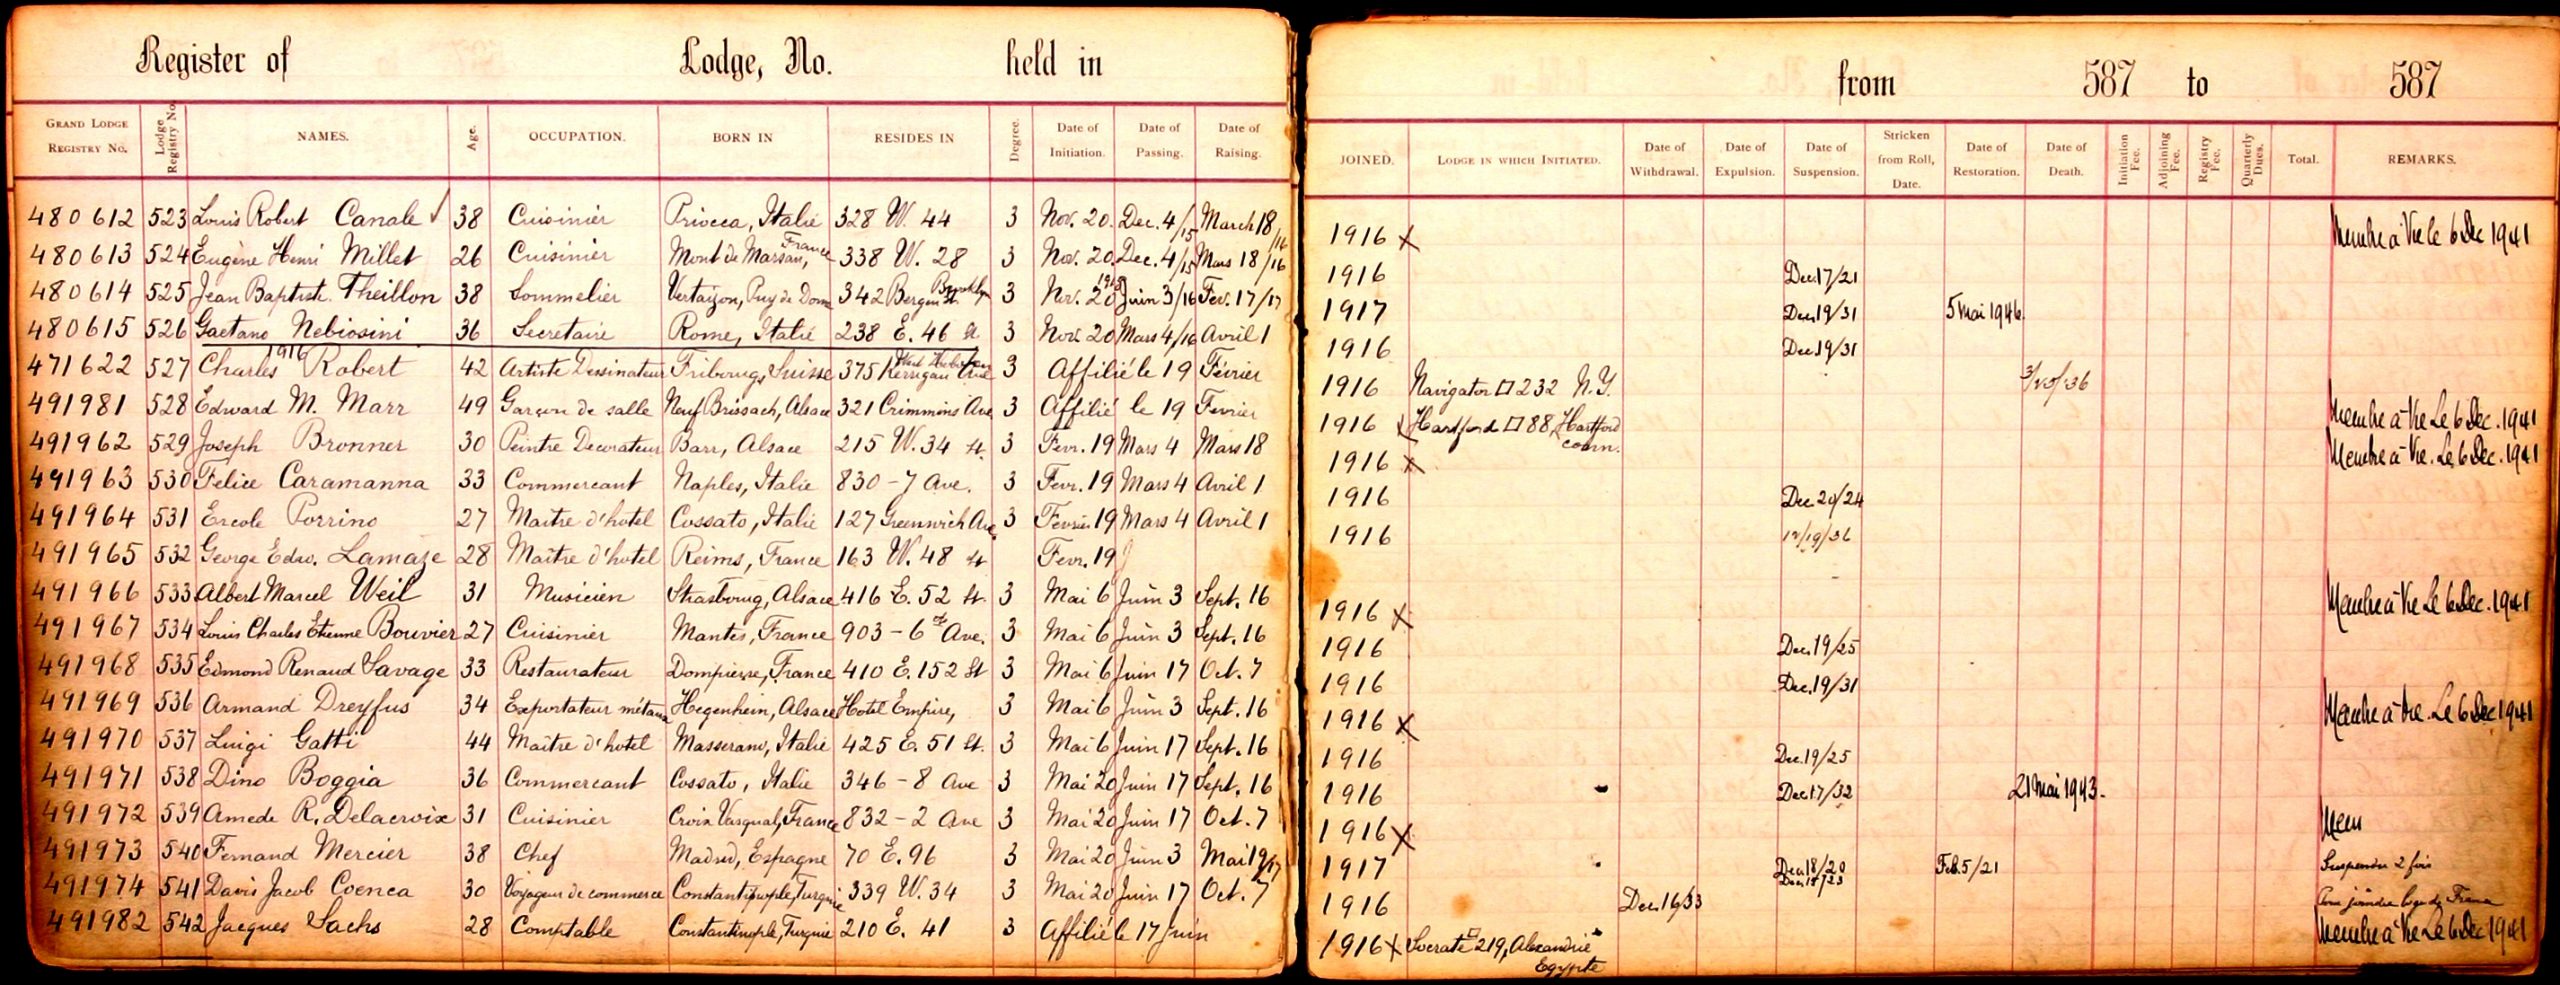 Register of Lodge, No. held in from 587 to 587
GRAND LODGE REGISTRY NO. Lodge Registry No. NAMES. Age. OCCUPATION. BORN IN RESIDES IN Degree. Date of Initiation. Date of Passing. Date of Raising. JOINED. LODGE IN WHICH INITIATED. Date of Withdrawal. Date of Expulsion. Date of Suspension. Stricken from Roll, Date. Date of Restoration. Date of Death. Initiation Fee. Adjoining Fee. Registry Fee. Quarterly Dues. Total. REMARKS.
480612 523 Louis Robert Canale √ 38 Cuisinier Priocca, Italie 328 W. 44 3 Nov. 20. Dec. 4/15 March 18/16 1916 X Membre à Vie le 6 Dec 1941
480613 524 Eugène Henri Millet 26 Cuisinier Mont de Marsan, France 338 W. 28 3 Nov. 20. Dec. 4/15 Mars 18/16 1916 Dec. 17/21
480614 525 Jean Baptiste Theillon 38 Sommelier Vertaizon, Puy de Dome 342 Bergen St. Brooklyn 3 Nov. 20 1915 Juin 3/16 Fev. 17/17 1917 Dec. 19/31 5 Mai 1946
480615 526 Gaetano Nebiosini 36 Secretaire Rome, Italie 238 E. 46 St 3 Nov. 20 Mars 4/16 Avril 1 1916 Dec. 19/31
1916
471622 527 Charles Robert 42 Artiste Dessinateur Fribourg, Suisse 375 Kerrigan Ave 3 Affilié le 19 Février 1916 Navigator □ 232 N.Y.
491981 528 Edward M. Marr 49 Garçon de salle Neuf Brissach, Alsace 321 Crimmins Ave 3 Affilié le 19 Fevrier 1916 X Hartford □ 88, Hartford conn. Membre à Vie Le 6 Dec. 1941
491962 529 Joseph Bronner 30 Peintre Decorateur Barr, Alsace 215 W. 34 St. 3 Fevr. 19 Mars 4 Mars 18 1916 X Membre à Vie. Le 6 Dec. 1941
491963 530 Felice Caramanna 33 Commercant Naples, Italie 830 - 7 Ave. 3 Fevr. 19 Mars 4 Avril 1 1916 Dec. 20/24
491964 531 Ercole Porrino 27 Maitre d'hotel Cossato, Italie 127 Greenwich Ave 3 Fevrier 19 Mars 4 Avril 1 1916 12/19/36
491965 532 George Edw. Lamaze 28 Maître d'hotel Reims, France 163 W. 48 St Fevr. 19
491966 533 Albert Marcel Weil 31 Musicien Strasbourg, Alsace 416 E. 52 St. 3 Mai 6 Juin 3 Sept. 16 1916 X Membre à Vie Le 6 Dec. 1941
491967 534 Louis Charles Etienne Bouvier 27 Cuisinier Mantes, France 903 - 6th Ave. 3 Mai 6 Juin 3 Sept. 16 1916 Dec. 19/25
491968 535 Edmond Renaud Savage 33 Restaurateur Dompierre, France 410 E. 152 St 3 Mai 6 Juin 17 Oct. 7 1916 Dec. 19/31
491969 536 Armand Dreyfus 34 Exportateur métaux Hegenheim, Alsace Hotel Empire, 3 Mai 6 Juin 3 Sept. 16 1916 X Membre à Vie. Le 6 Dec 1941
491970 537 Luigi Gatti 44 Maître d'hotel Masserano, Italie 425 E. 51 St. 3 Mai 6 Juin 17 Sept. 16 1916 Dec. 19/25
491971 538 Dino Boggia 36 Commercant Cossato, Italie 346 - 8 Ave 3 Mai 20 Juin 17 Sept. 16 1916 Dec. 17/32 21 Mai 1943.
491972 539 Amede R. Delacroix 31 Cuisinier Croix Vasqual, France 832 - 2 Ave 3 Mai 20 Juin 17 Oct. 7 1916 X Mem
491973 540 Fernand Mercier 38 Chef Madrid, Espagne 70 E. 96 3 Mai 20 Juin 3 Mai 19/17 1917 Dec. 18/20 Feb. 5/21 Suspendu 2 fois
491974 541 Davis Jacob Coenca 30 Voyageur de commerce Constantinople, Turquie 339 W. 34 3 Mai 20 Juin 17 Oct. 7 1916 Dec. 16/33 Pour joindre loge de France
491982 542 Jacques Sachs 28 Comptable Constantinople, Turquie 210 E. 41 3 Affilié le 17 Juin 1916 X Socrate □ 219, Alexandrie Egypte Membre à Vie Le 6 Dec 1941